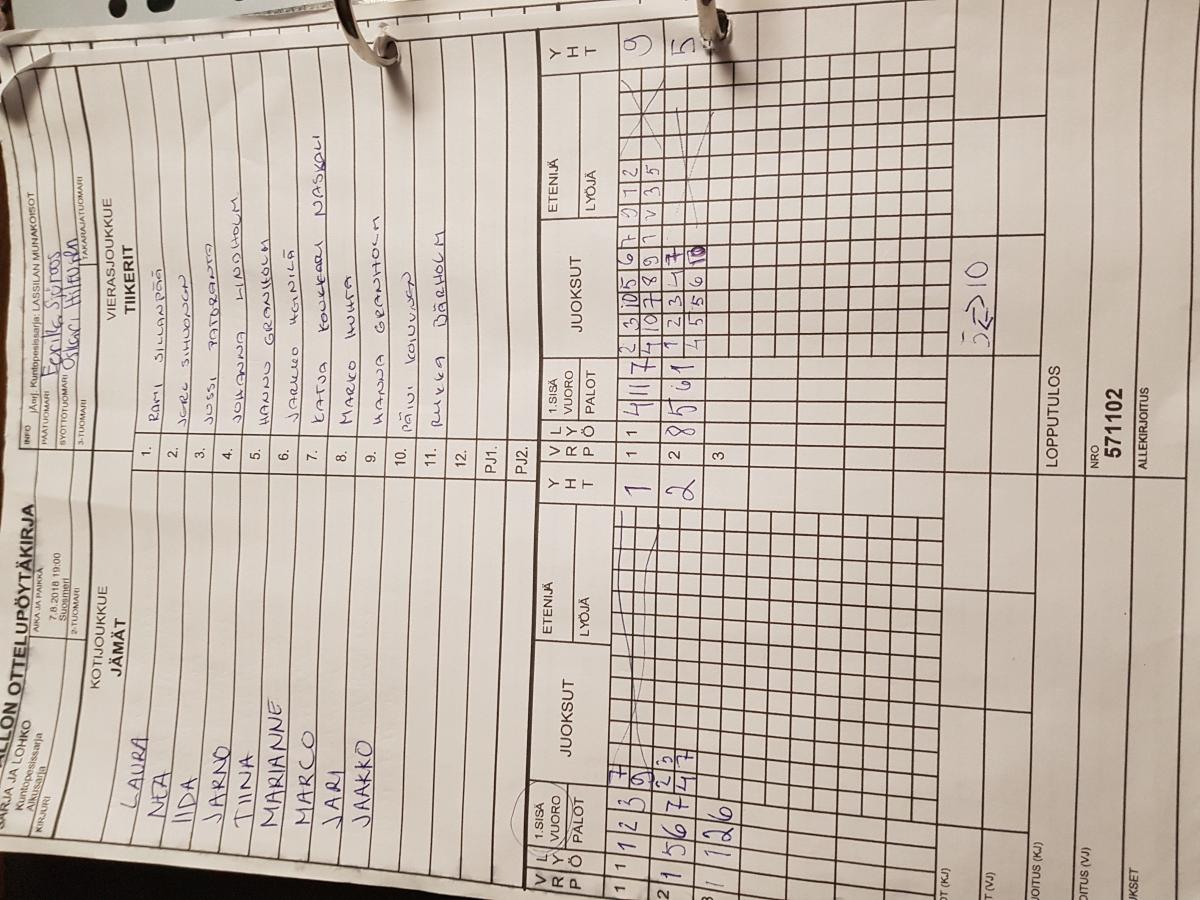 ALLON OTTELUPÖYTÄKIRJA
SARJA JA LOHKO
Kuntopesissarja
Alkusarja
KIRJURI
AIKA JA PAIKKA
7.8.2018 19:00
Suosmeri
2-TUOMARI
INFO
Kuntopesissarja: LASSILAN MUNAKOISOT
PÄÄTUOMARI
SYÖTTÖTUOMARI
Oskari
3-TUOMARI
TAKARAJATUOMARI
KOTIJOUKKUE
JÄMÄT
VIERASJOUKKUE
TIIKERIT
LAURA
NEA
IIDA
JARNO
TIINA
MARIANNE
MARCO
JARI
JAAKKO
1. RAMI SILLANPÄÄ
2. SIHVONEN
3. JUSSI
4. JOHANNA LINDHOLM
5. HANNO GRANHOLM
6. JARKKO
7. KATJA NASKALI
8. MARKO HUHTA
9. HANNA GRANHOLM
10. PÄIVI KOIVUNEN
11. BÄRHOLM
12.
PJ1.
PJ2.
V R P
L Y Ö
1.SISÄ VUORO
PALOT
JUOKSUT
ETENIJÄ
LYÖJÄ
Y H T
V R P
L Y Ö
1.SISÄ VUORO
PALOT
JUOKSUT
ETENIJÄ
LYÖJÄ
Y H T
1 1 1 2 3 7 9 1
2 1 5 6 7 2 3 4 7 2
3 1 1 2 6
1 1 4 11 7 2 3 10 5 6 7 9 1 2 9
4 10 7 8 9 1 2 3 5
2 8 5 6 1 1 2 3 4 7 5
4 5 5 6 10
3
5 <=> 10
T (KJ)
T (VJ)
OITUS (KJ)
OITUS (VJ)
KSET
LOPPUTULOS
NRO
571102
ALLEKIRJOITUS